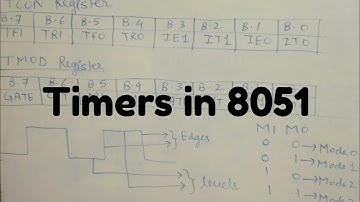 TCON Register
B.7 B.6 B.5 B.4 B.3 B.2 B.1 B.0
TF1 TR1 TF0 TR0 IE1 IT1 IE0 IT0
TMOD Register
B.7
GATE
Timers in 8051
Edges
levels
M1 M0
0 0 → Mode 0
0 1 → Mode 1
1 0 → Mode 2
1 1